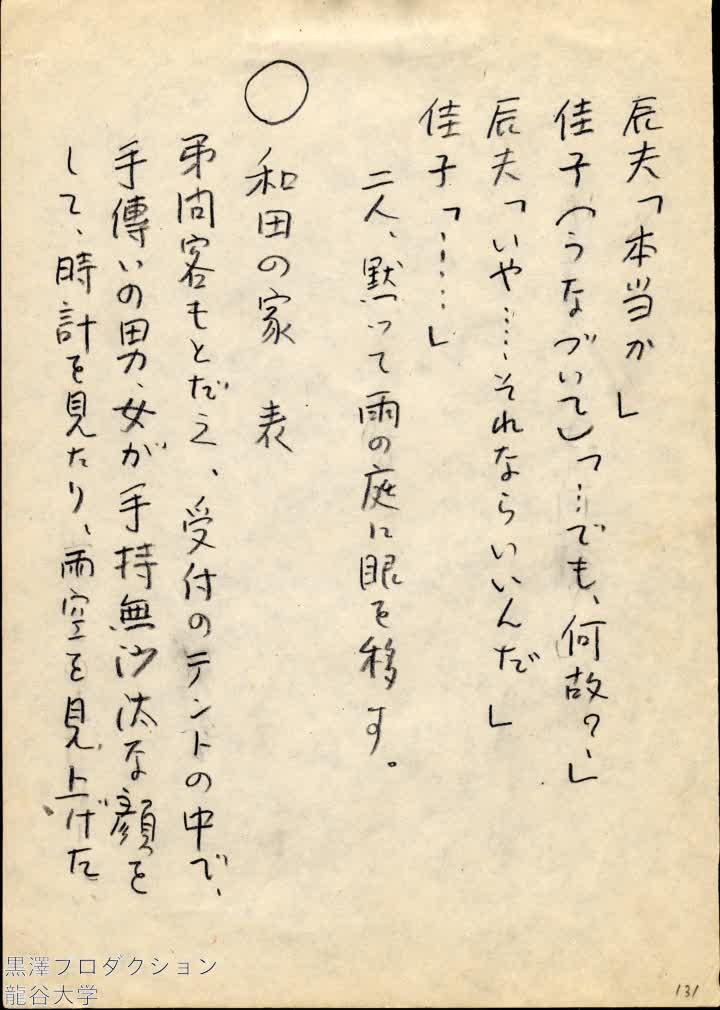 辰夫「本当か」
佳子（うなづいて）「…でも、何故？」
辰夫「いや……それならいいんだ」
佳子「……」
二人、黙って雨の庭に眼を移す。
○和田の家　表
弔問客もとだえ、受付のテントの中で、
手傳いの男、女が手持無沙汰な顔を
して、時計を見たり、雨空を見上げた
131
黒澤プロダクション
龍谷大学